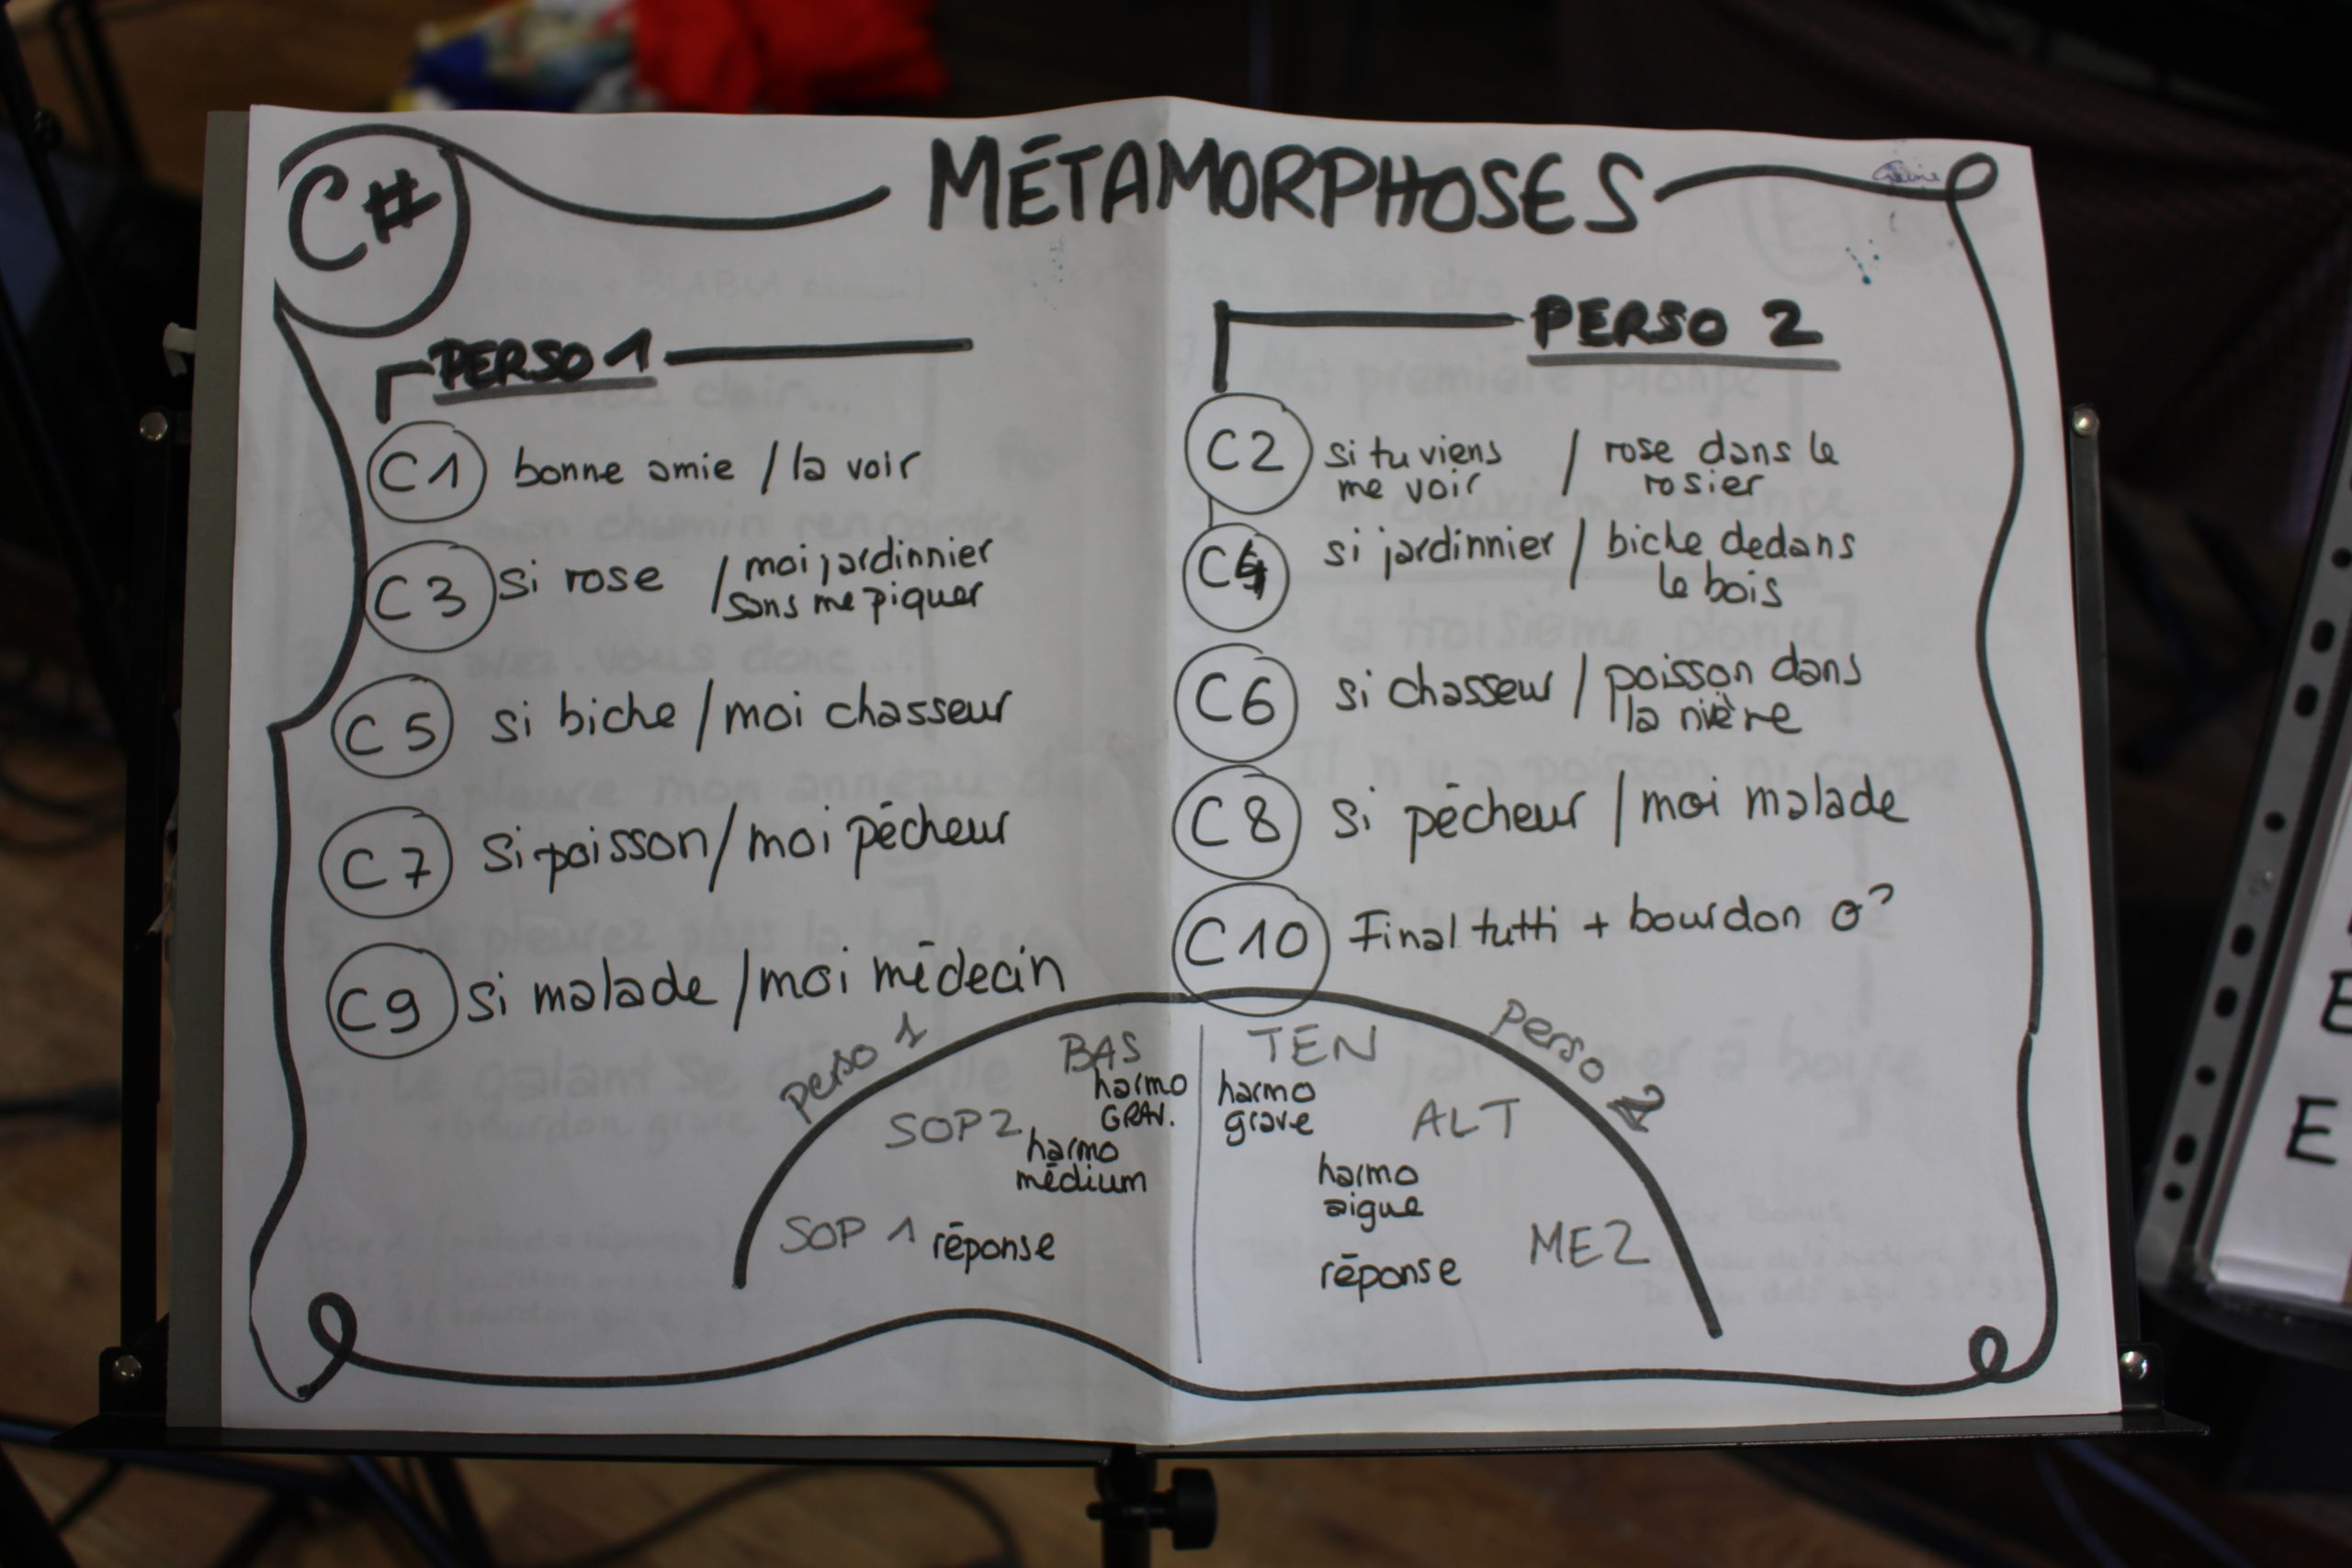 C#
MÉTAMORPHOSES
PERSO 1
C1 bonne amie / la voir
C3 si rose / moi jardinnier
sans me piquer
C5 si biche / moi chasseur
C7 si poisson / moi pêcheur
C9 si malade / moi médecin
PERSO 2
C2 si tu viens / rose dans le
me voir rosier
C4 si jardinnier / biche dedans
le bois
C6 si chasseur / poisson dans
la rivière
C8 si pêcheur / moi malade
C10 Final tutti + bourdon
perso 1
BAS
harmo
GRAV.
SOP2
harmo
médium
SOP 1 réponse
perso 2
TEN
harmo
grave
ALT
harmo
aigue
MEZ
réponse
E
E